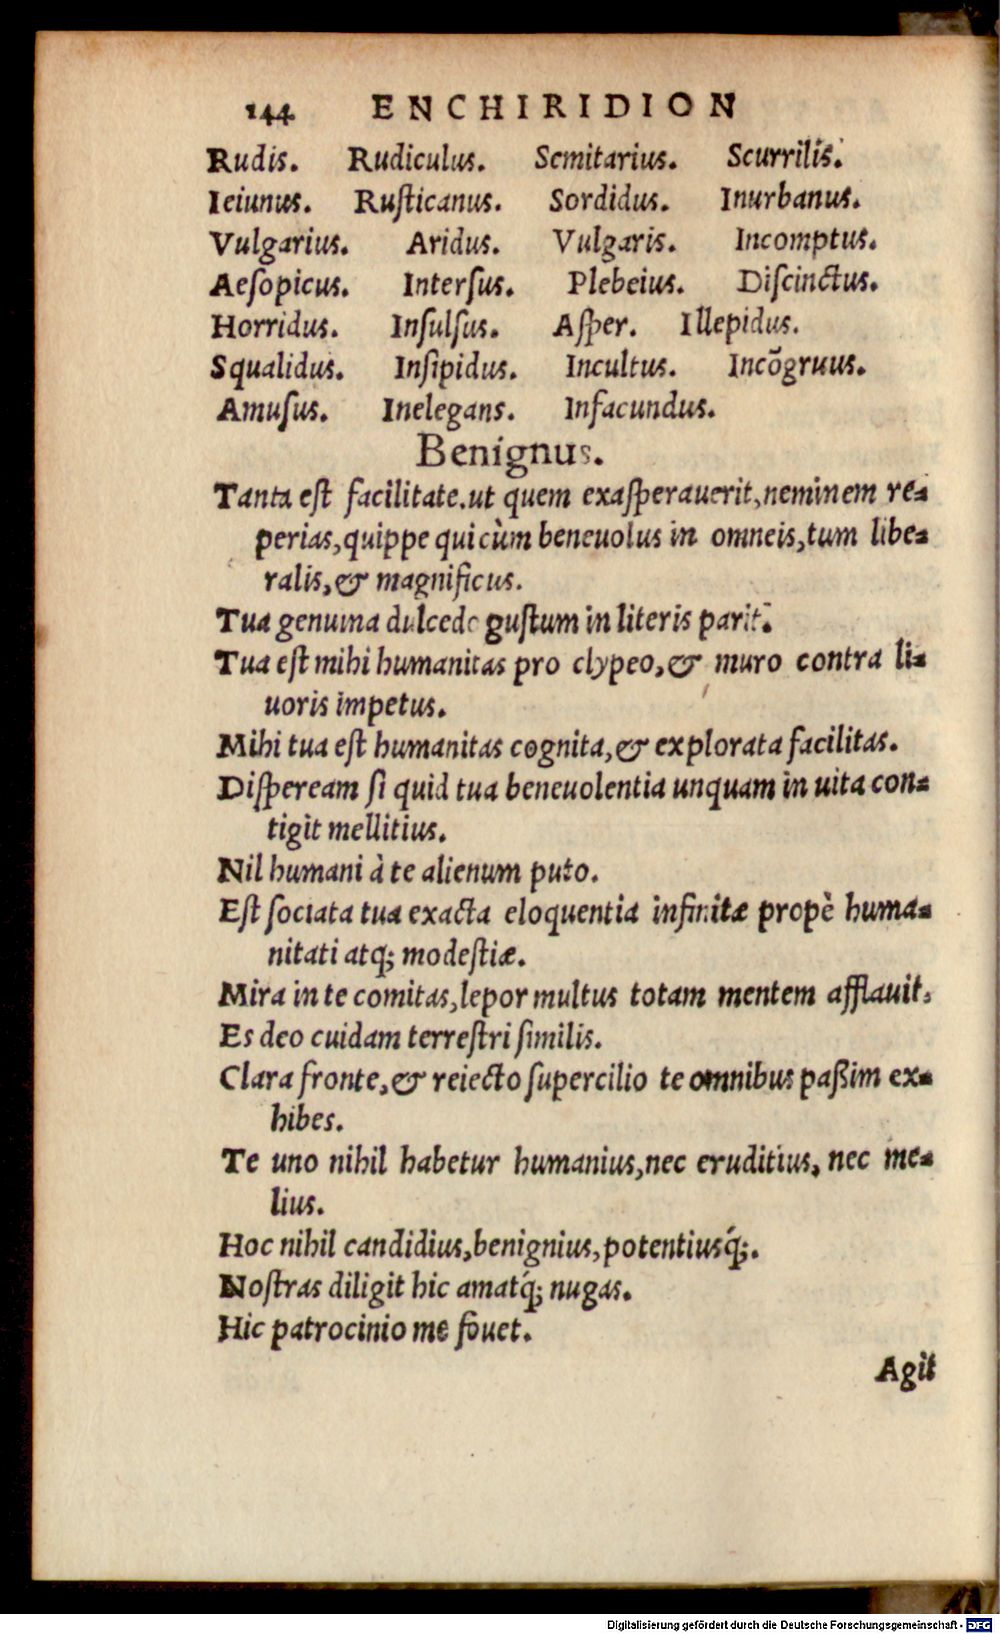 144 ENCHIRIDION
Rudis. Rudiculus. Semitarius. Scurrilis.
Ieiunus. Rusticanus. Sordidus. Inurbanus.
Vulgarius. Aridus. Vulgaris. Incomptus.
Aesopicus. Intersus. Plebeius. Discinctus.
Horridus. Insulsus. Asper. Illepidus.
Squalidus. Insipidus. Incultus. Incõgruus.
Amusus. Inelegans. Infacundus.
Benignus.
Tanta est facilitate.ut quem exasperauerit,neminem re-
perias,quippe qui cùm beneuolus in omneis,tum libe-
ralis,& magnificus.
Tua genuina dulcedo gustum in literis parit.
Tua est mihi humanitas pro clypeo,& muro contra li-
uoris impetus.
Mihi tua est humanitas cognita,& explorata facilitas.
Dispeream si quid tua beneuolentia unquam in uita con-
tigit mellitius.
Nil humani à te alienum puto.
Est sociata tua exacta eloquentia infinitæ propè huma-
nitati atq; modestiæ.
Mira in te comitas,lepor multus totam mentem afflauit.
Es deo cuidam terrestri similis.
Clara fronte,& reiecto supercilio te omnibus paßim ex-
hibes.
Te uno nihil habetur humanius,nec eruditius, nec me-
lius.
Hoc nihil candidius,benignius,potentiusq́;.
Nostras diligit hic amatq́; nugas.
Hic patrocinio me fouet.
Agit
Digitalisierung gefördert durch die Deutsche Forschungsgemeinschaft - DFG